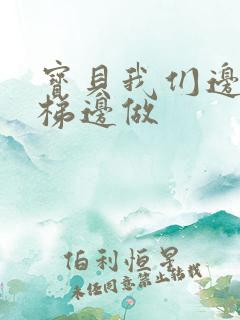 寶貝我们邊
梯邊做
伯利恒星
未经同意禁止转载